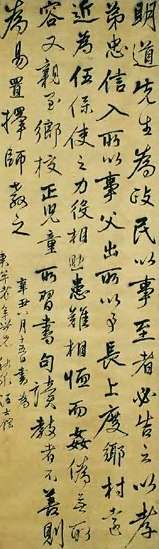 明道先生為政民以事至者必告之以孝
弟忠信入所以事父出所以事長上度鄉村遠
近為伍保使之力役相助患難相恤而姦偽無所
容又親至鄉校正兒童所習書句讀教者不善則
為易置擇師教之
辛丑八月十五日書為